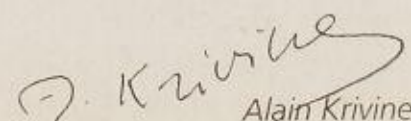 A. Krivine
Alain Krivine